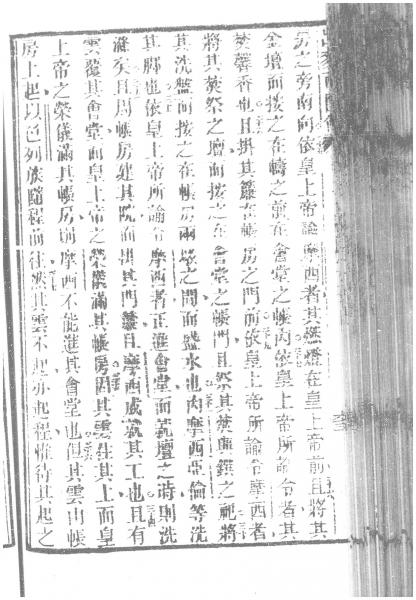 房之旁南向依皇上帝諭摩西者其燃燈在皇上帝前且將其
金壇而按之在幬之前在會堂之帳內依皇上帝所諭令者其
焚馨香也且掛其簾在帳房之門前依皇上帝所諭令摩西者
將其焚祭之壇而按之在會堂之帳門且祭其焚與饌之祀將
其洗盤而按之在帳房兩壇之間而盛水也內摩西亞倫等洗
其腳也依皇上帝所諭令摩西者正進會堂而就壇之時則洗
滌矣且周帳房建其院而掛其門簾且摩西成就其工也且有
雲覆其會堂而皇上帝之榮儀滿其帳房因其雲在其上而皇
上帝之榮儀滿其帳房則摩西不能進其會堂也但其雲由帳
房上起以色列族隨程前往然其雲不起亦起程惟待其起之